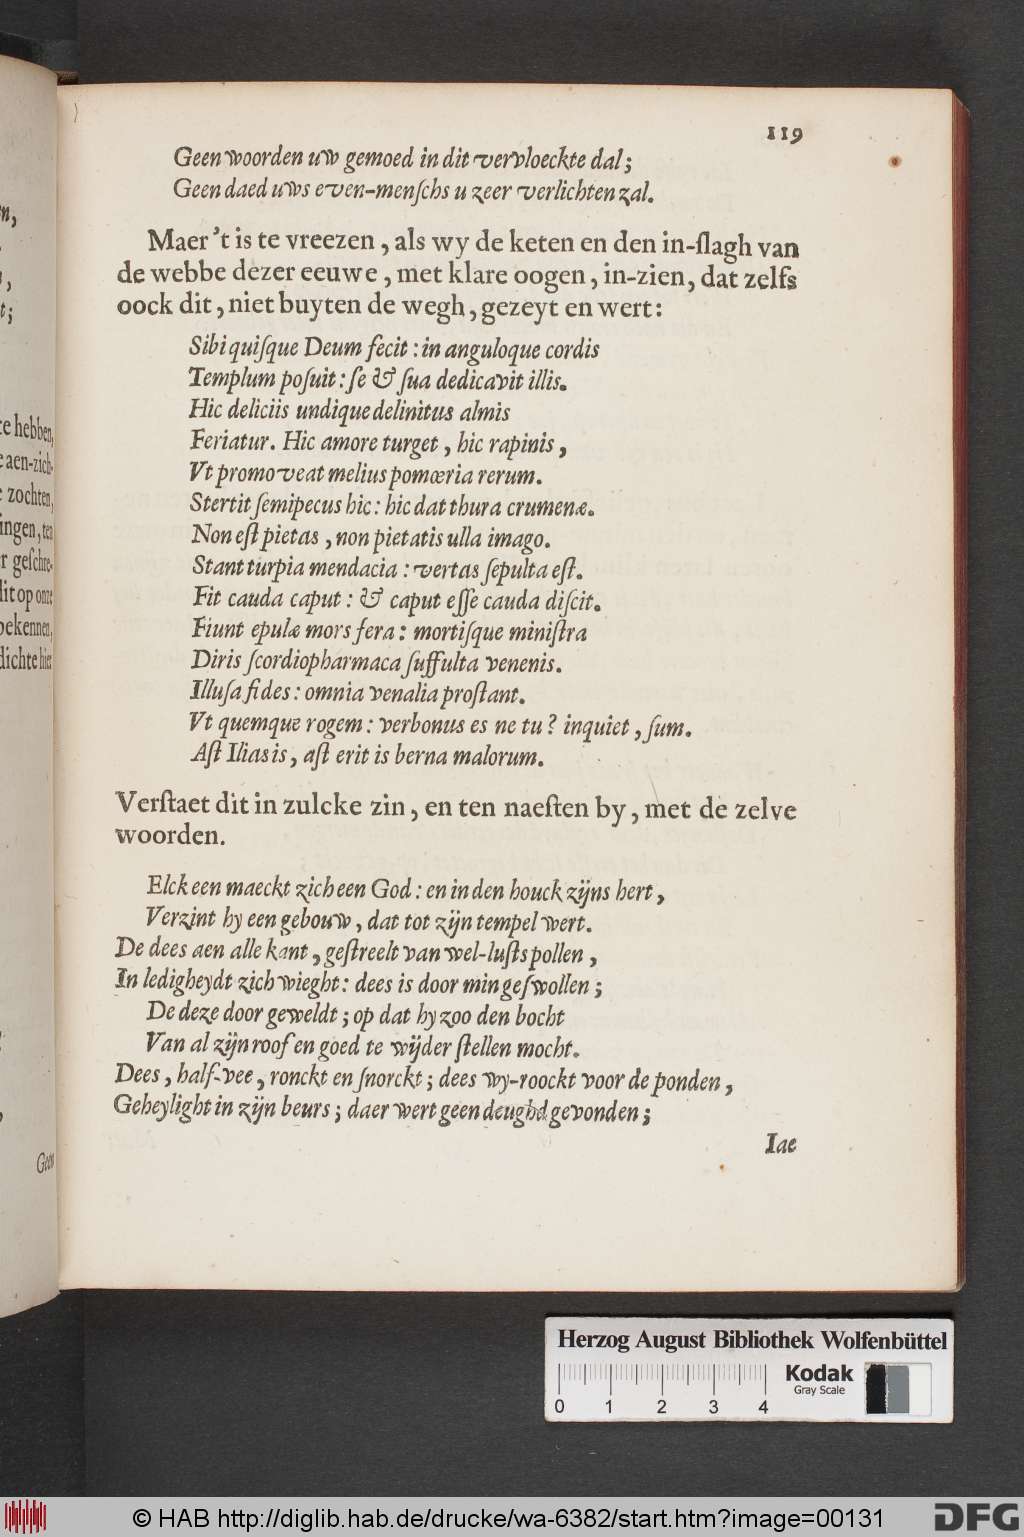 119
Geen woorden uw gemoed in dit vervloeckte dal;
Geen daed uws even-menſchs u zeer verlichten zal.
Maer 't is te vreezen, als wy de keten en den in-ſlagh van
de webbe dezer eeuwe, met klare oogen, in-zien, dat zelfs
oock dit, niet buyten de wegh, gezeyt en wert:
Sibi quiſque Deum fecit: in anguloque cordis
Templum poſuit: ſe & ſua dedicavit illis.
Hic deliciis undique delinitus almis
Feriatur. Hic amore turget, hic rapinis,
Vt promoveat melius pomœria rerum.
Stertit ſemipecus hic: hic dat thura crumenæ.
Non eſt pietas, non pietatis ulla imago.
Stant turpia mendacia: vertas ſepulta eſt.
Fit cauda caput: & caput eſſe cauda diſcit.
Fiunt epulæ mors fera: mortiſque miniſtra
Diris ſcordiopharmaca ſuffulta venenis.
Illuſa fides: omnia venalia proſtant.
Vt quemque rogem: verbonus es ne tu? inquiet, ſum.
Aſt Ilias is, aſt erit is berna malorum.
Verſtaet dit in zulcke zin, en ten naeſten by, met de zelve
woorden.
Elck een maeckt zich een God: en in den houck zijns hert,
Verzint hy een gebouw, dat tot zijn tempel wert.
De dees aen alle kant, geſtreelt van wel-luſts pollen,
In ledigheydt zich wieght: dees is door min geſwollen;
De deze door geweldt; op dat hy zoo den bocht
Van al zijn roof en goed te wijder ſtellen mocht.
Dees, half-vee, ronckt en ſnorckt; dees wy-roockt voor de ponden,
Geheylight in zijn beurs; daer wert geen deughd gevonden;
Iae
te hebben,
aen-zich-
zochten,
ingen, ten
geſchre-
dit op onze
bekennen,
dichte hier
Geen
Herzog August Bibliothek Wolfenbüttel
Kodak
Gray Scale
0 1 2 3 4
© HAB http://diglib.hab.de/drucke/wa-6382/start.htm?image=00131
DFG